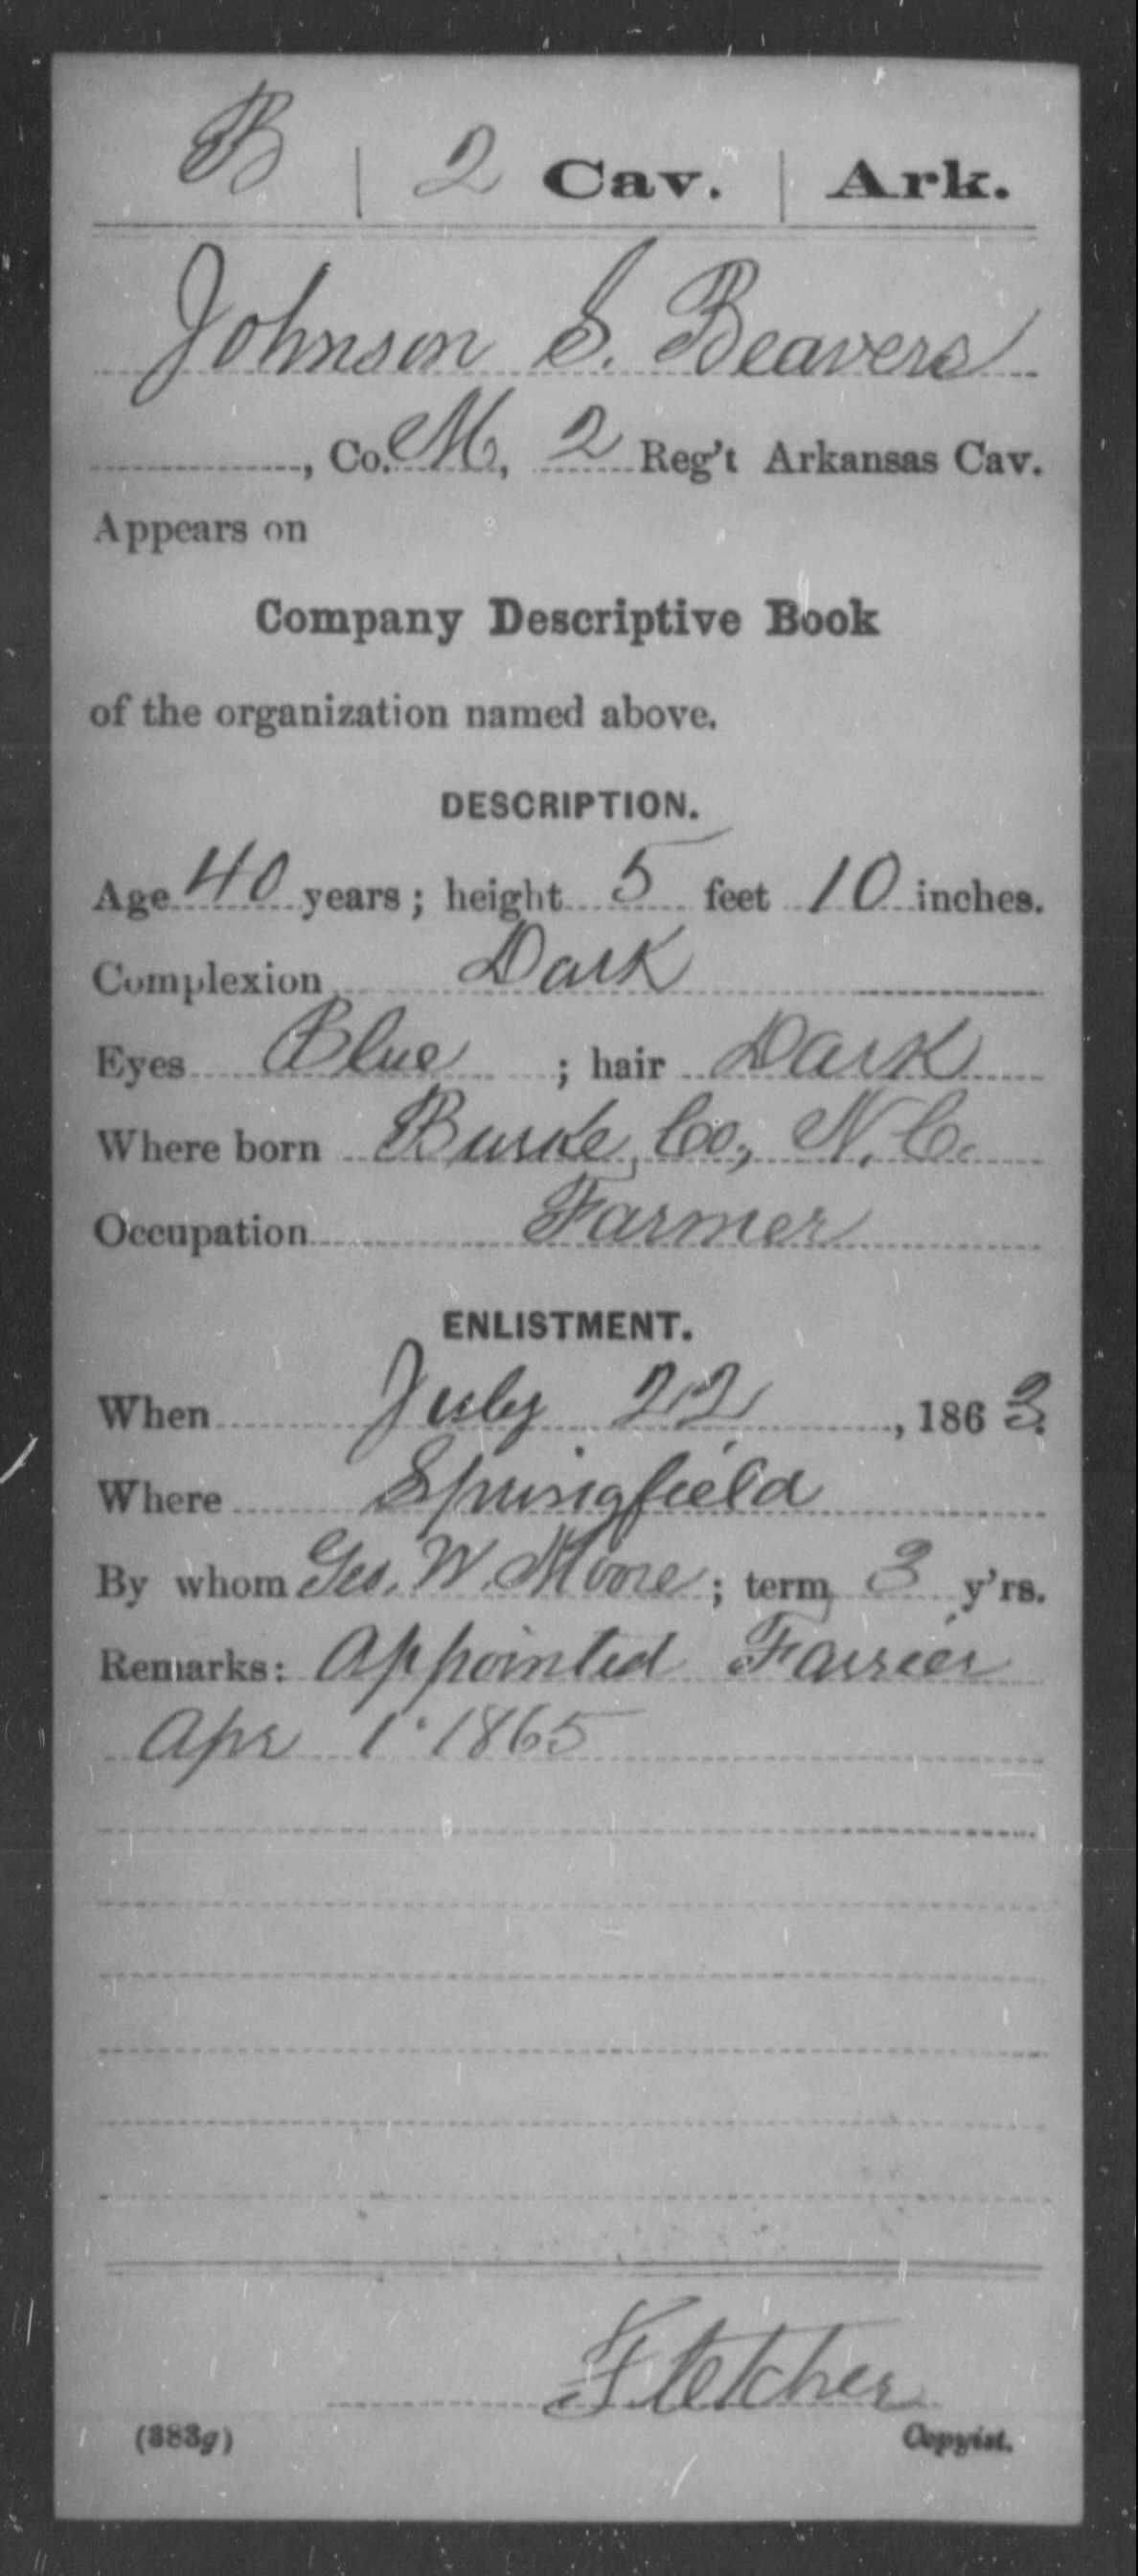 B | 2 Cav. | Ark.
Johnson S. Beavers
, Co. M, 2 Reg't Arkansas Cav.
Appears on
Company Descriptive Book
of the organization named above.
DESCRIPTION.
Age 40 years; height 5 feet 10 inches.
Complexion Dark
Eyes Blue ; hair Dark
Where born Burke Co., N.C.
Occupation Farmer
ENLISTMENT.
When July 22 , 1863.
Where Springfield
By whom Geo. W. Moore ; term 3 y'rs.
Remarks: Appointed Farrier
Apr 1 1865
Fletcher
(383g) Copyist.